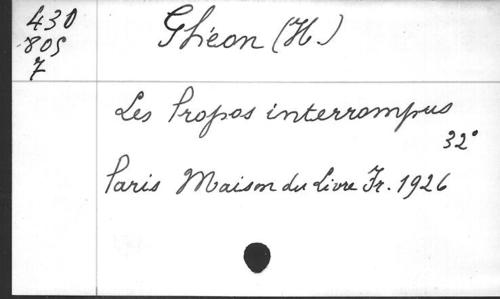 430
805
7
Ghéon (H.)
Les Propos interrompus
32°
Paris Maison du Livre Fr. 1926